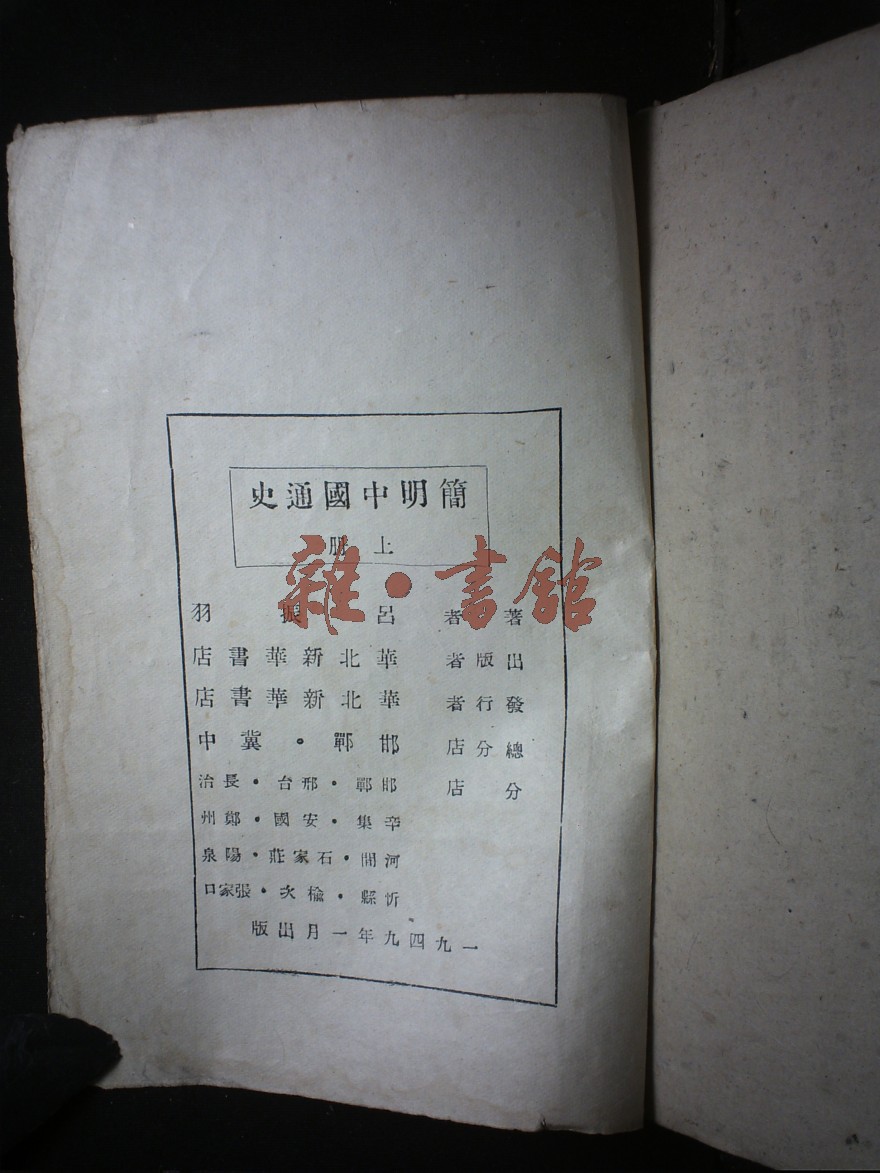 簡明中國通史
上冊
著者 呂振羽
出版者 華北新華書店
發行者 華北新華書店
總分店 邯鄲・冀中
分店 邯鄲・邢台・長治
辛集・安國・鄭州
河間・石家莊・陽泉
忻縣・榆次・張家口
一九四九年一月出版
雜・書館